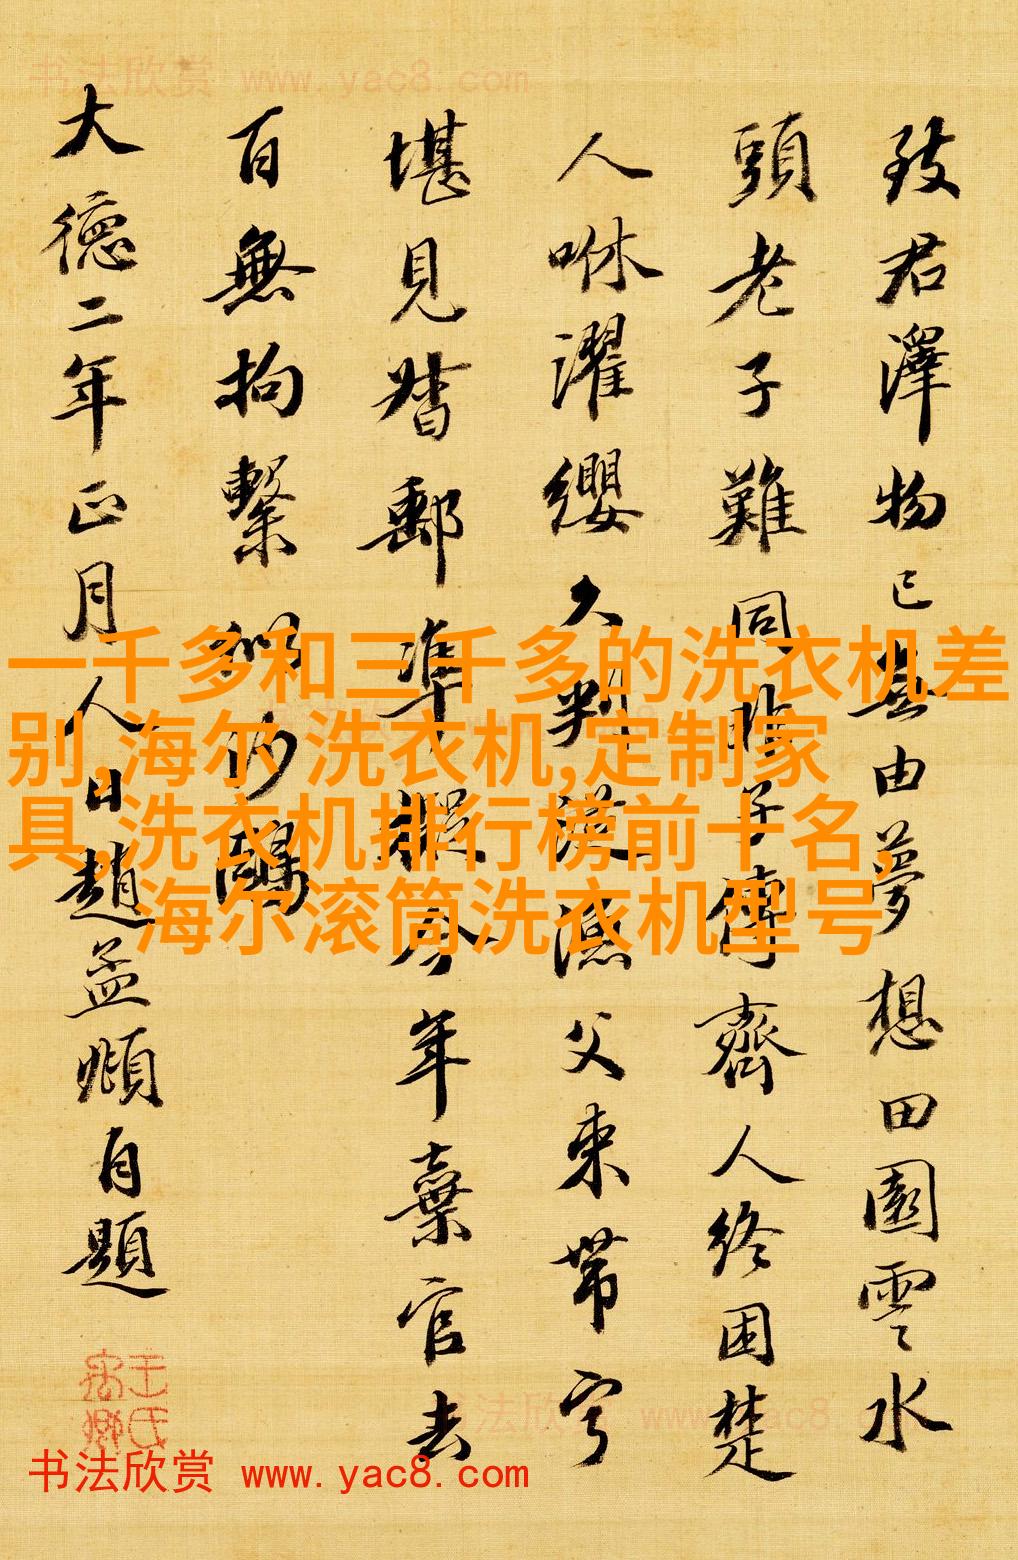 书法欣赏 www.yac8.com
致君澤物已無由夢想田園雲水
頭老子難同非子傳齊人終困楚
人咻濯纓久判從漁父束帶寧
堪見督郵準擬今年棄官去
百無拘繫似沙鷗
大德二年正月人日趙孟頫自題
一千多和三千多的洗衣机差
别,海尔 洗衣机,定制家
具,洗衣机排行榜前十名,
海尔滚筒洗衣机型号
王氏
禹卿
书法欣赏 www.yac8.com
书法欣赏 www.yac8.com